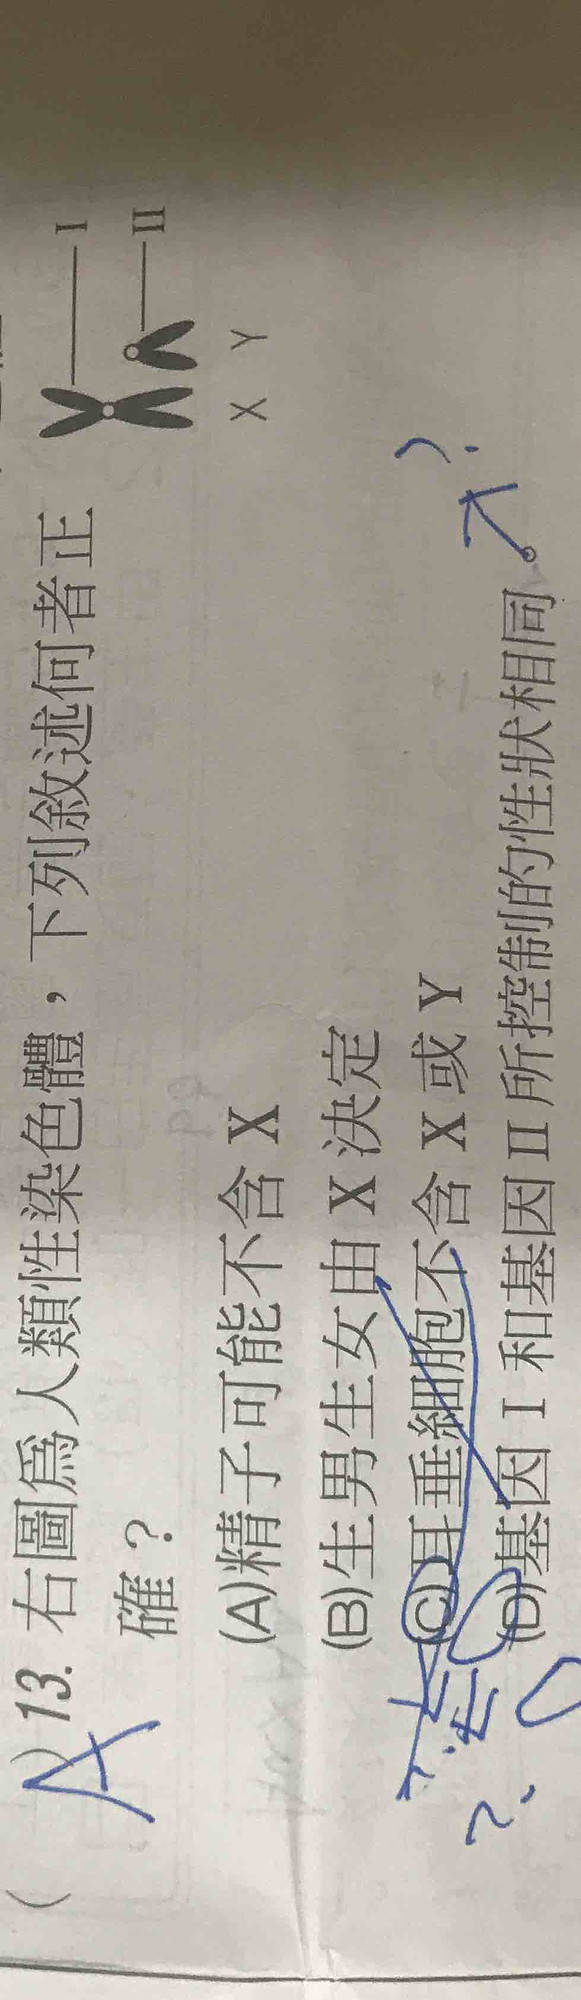 ( A ) 13. 右圖爲人類性染色體，下列敘述何者正
確？
I
II
X Y
(A)精子可能不含 X
(B)生男生女由 X 決定
(C)耳垂細胞不含 X 或 Y
(D)基因 I 和基因 II 所控制的性狀相同。
?